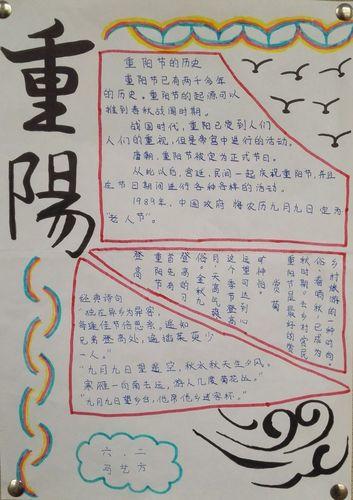 重陽
重阳节的历史
重阳节已有两千多年
的历史。重阳节的起源可以
推到春秋战国时期。
战国时代,重阳已受到人们
人们的重视,但是帝宫中进行的活动。
唐朝,重阳节被定为正式节日。
从此以后,宫廷、民间一起庆祝重阳节,并且
在节日期间进行各种各样的活动。
1989年,中国政府将农历九月九日定为
“老人节”。
登高
重阳节有
首先有登高的习
俗。金秋九
月,天高气爽,
这个季节登高
远望可达到心
旷神怡
赏菊
重阳节是最好的赏
秋时期。去乡村赏民
俗、看晒秋,已成为
乡村旅游的一种时尚。
经典诗句
“独在异乡为异客,
每逢佳节倍思亲。遥知
兄弟登高处,遍插茱萸少
一人。”
“九月九日望遥空,秋水秋天生夕风。
寒雁一向南去远,游人几度菊花丛。”
“九月九日望乡台,他席他乡送客杯。”
六.二
马艺方